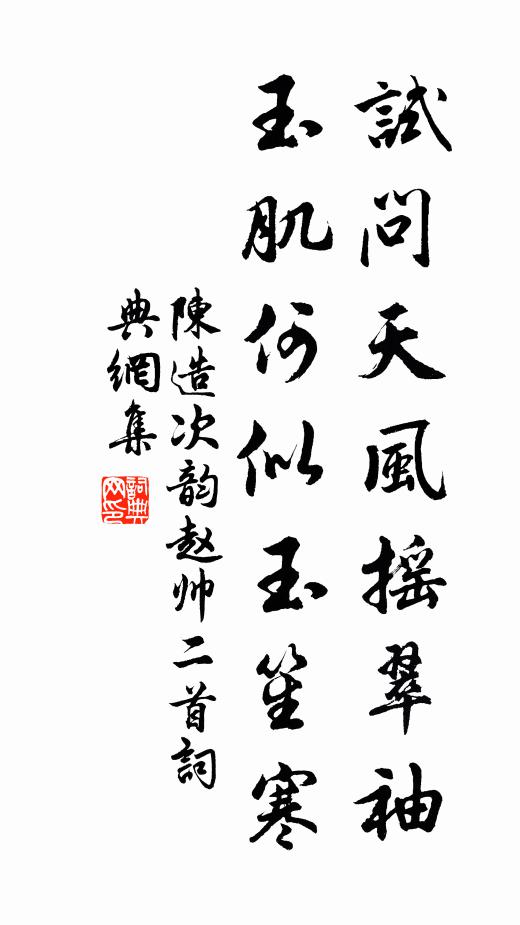 試問天風摇翠袖
玉肌何似玉笙寒
陳造次韵赵帅二首詞
典網集
詞典网印